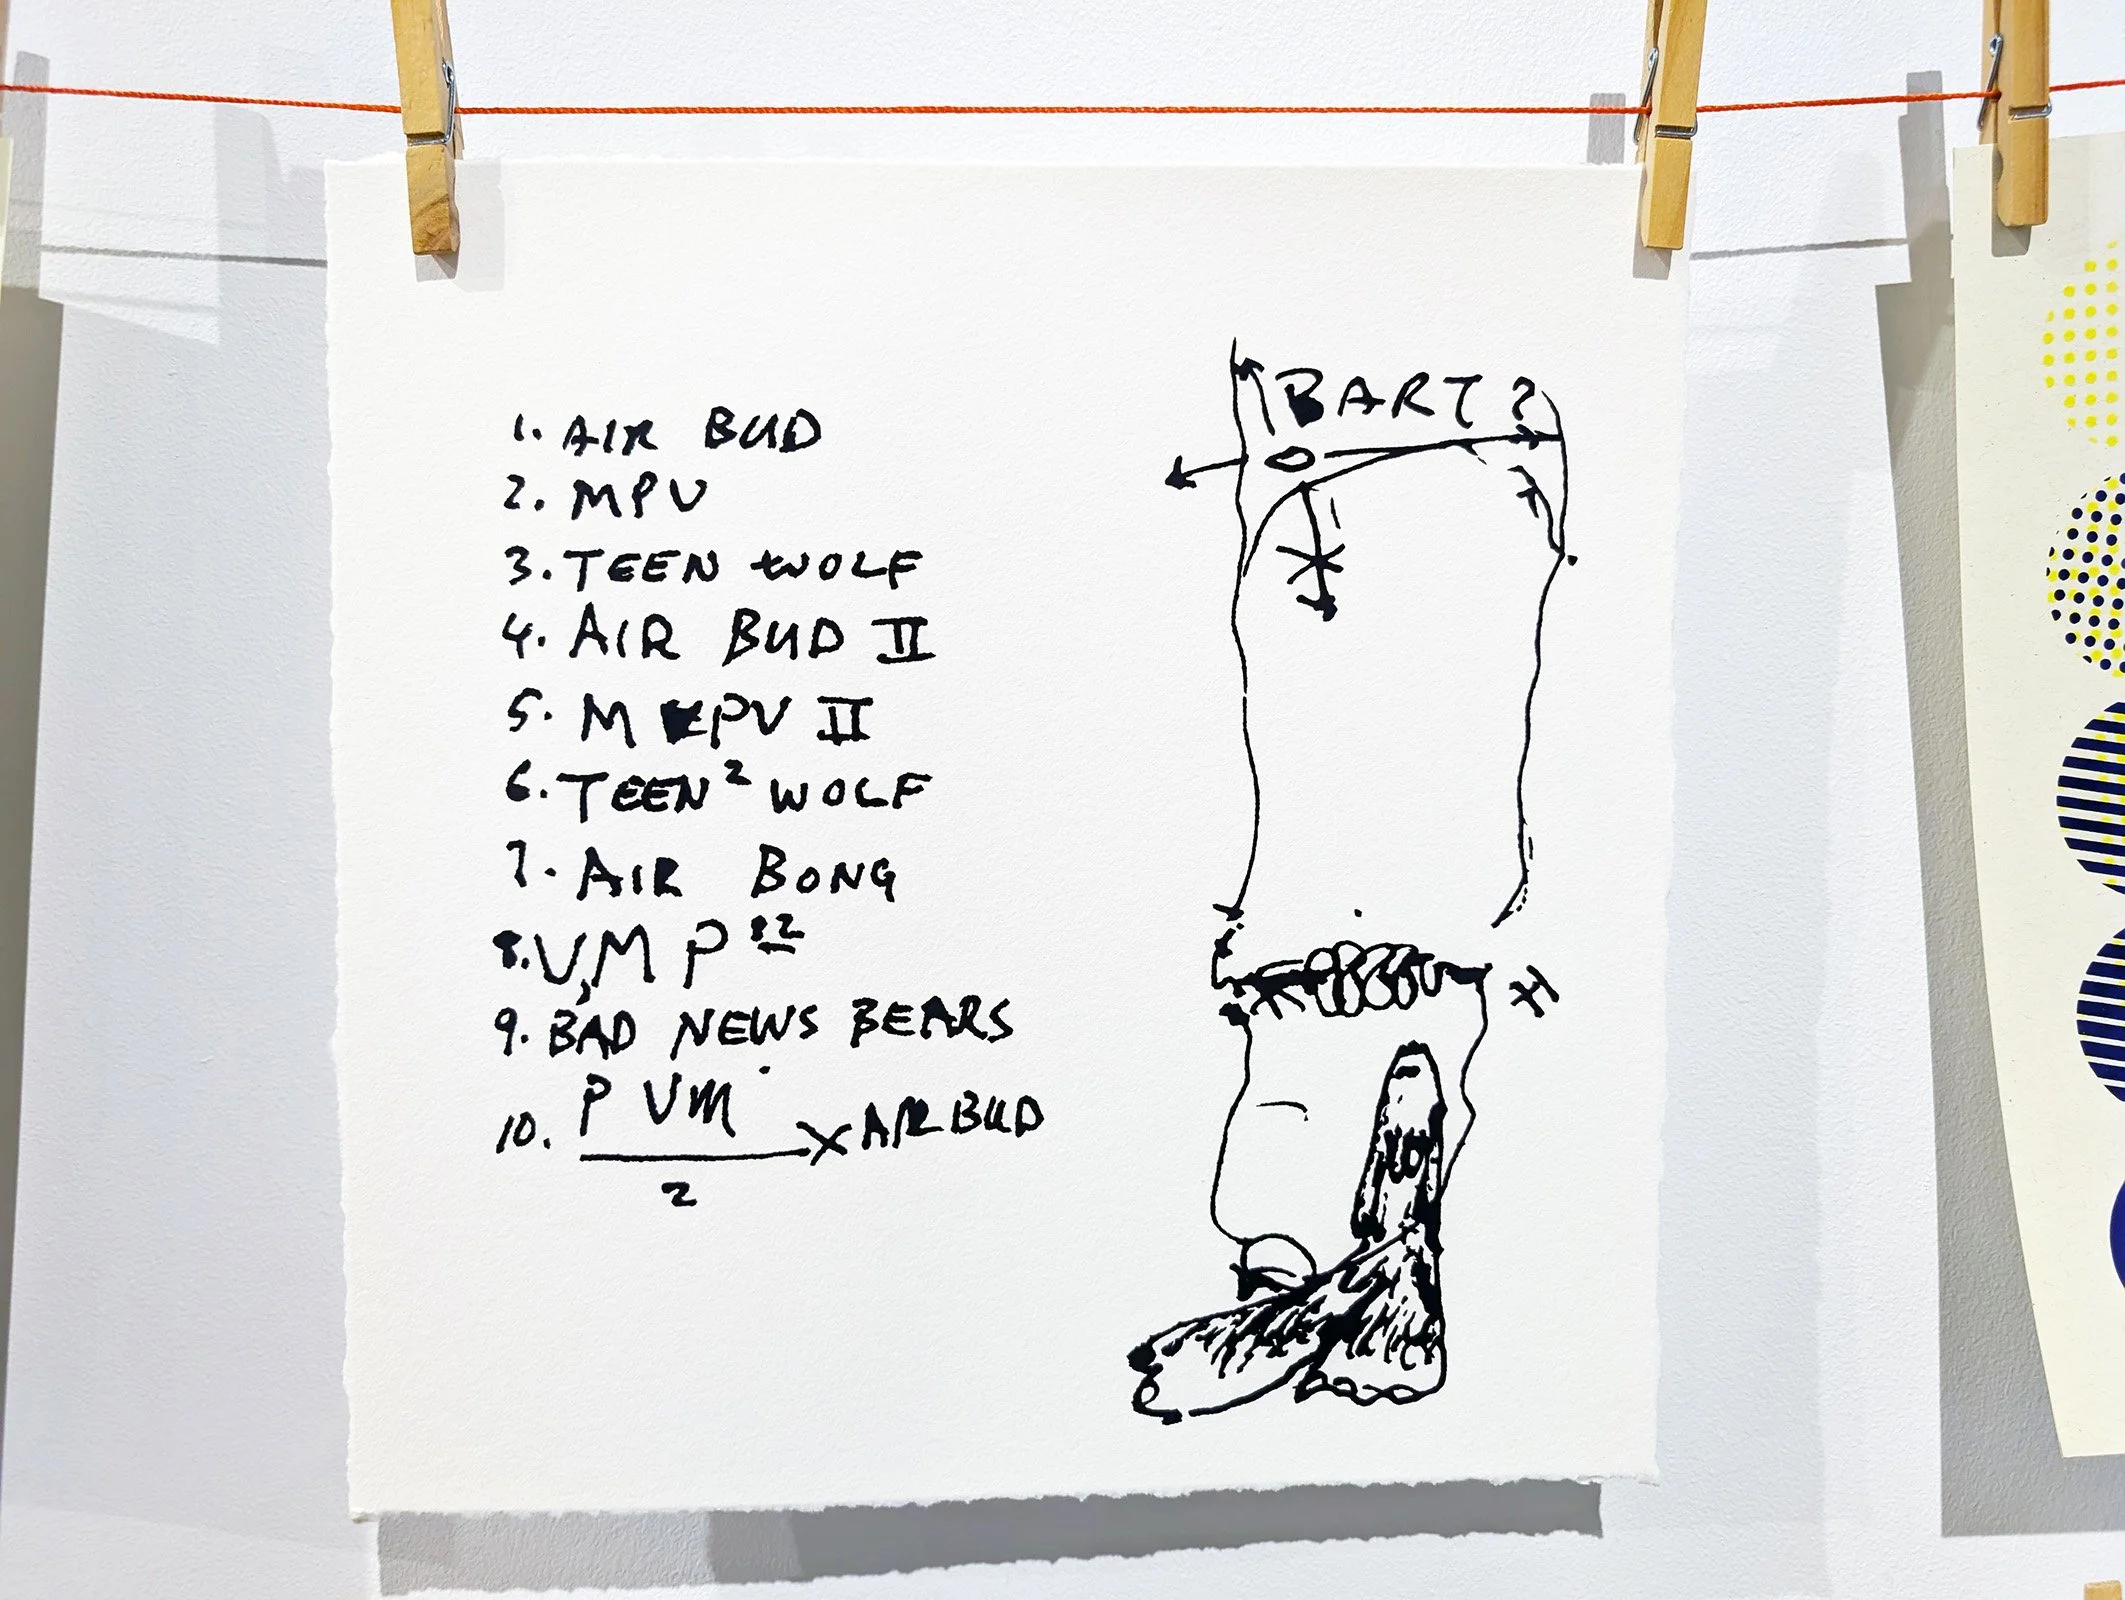 1. AIR BUD
2. MPV
3. TEEN WOLF
4. AIR BUD II
5. M PV II
6. TEEN² WOLF
7. AIR BONG
8. V,M P
9. BAD NEWS BEARS
10. P VM
2
X AIR BUD
BART?